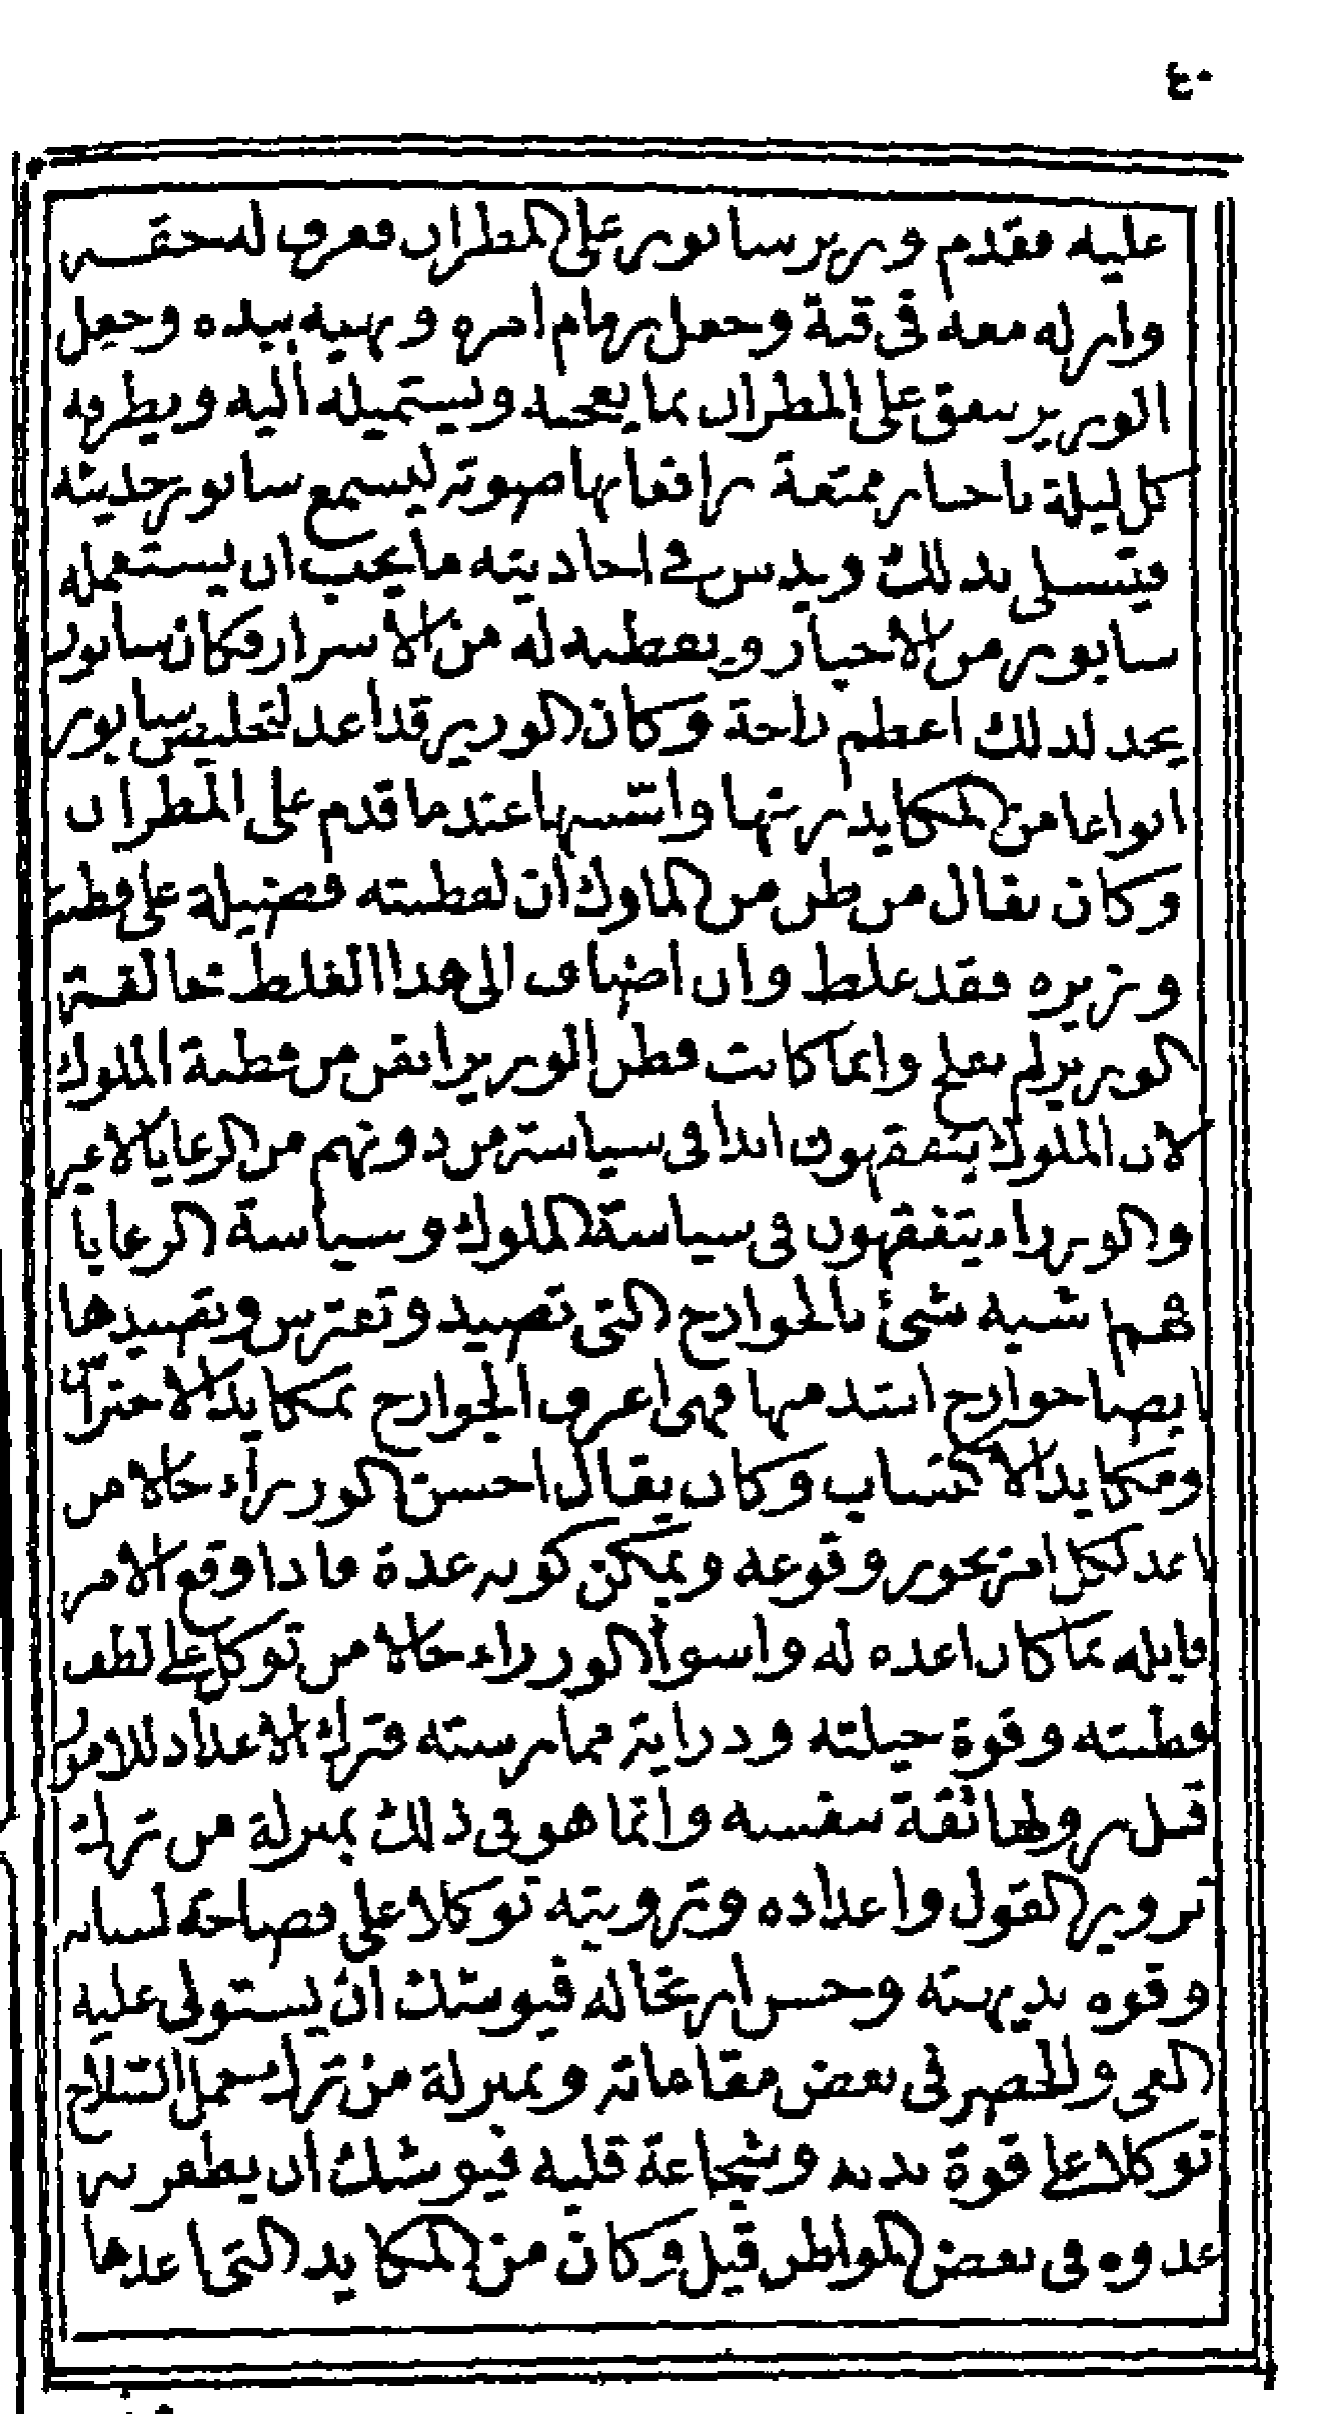 ٤٠
عليه فقدم وزير سابور على المطران فعرف له حقه
وانزله معه في قبة وجعل زمام امره ونهيه بيده وجعل
الوزير ينفق على المطران بما يعجبه ويستميله اليه ويطرفه
كل ليلة باخبار ممتعة رافعا بها صوته ليسمع سابور حديثه
فيتسلى بذلك ويدس في احاديثه ما يحب ان يستعمله
سابور من الاخبار ويفطنه له من الاسرار فكان سابور
يجد لذلك اعظم راحة وكان الوزير قد اعد لتخليص سابور
انواعا من المكايد رتبها واسسها عند ما قدم على المطران
وكان يقال من ظن من الملوك ان لفطنته فضيلة على فطنة
وزيره فقد غلط وان اضاف الى هذا الغلط مخالفة
الوزير لم يفلح وانما كانت فطن الوزير انقص من فطنة الملوك
لان الملوك يتفقهون ابدا في سياسة من دونهم من الرعايا لا غير
والوزراء يتفقهون في سياسة الملوك وسياسة الرعايا
فهم اشبه شئ بالجوارح التي تصيد وتفترس وتصيدها
ايضا جوارح اشد منها فهى اعرف الجوارح بمكايد الاحتراس
ومكايد الاكتساب وكان يقال احسن الوزراء حالا من
اعد لكل امر يجوز وقوعه ويمكن كونه عدة فاذا وقع الامر
قابله بما كان اعده له واسوأ الوزراء حالا من توكل على لطف
فطنته وقوة حيلته ودراية ممارسته فترك الاعداد للامور
قبل نزولها ثقة بنفسه وانما هو في ذلك بمنزلة من ترك
تزوير القول واعداده وترويته توكلا على فصاحة لسانه
وقوه بديهته وحسن ارتجاله فيوشك ان يستولى عليه
العي والحصر في بعض مقاماته وبمنزلة من ترك حمل السلاح
توكلا على قوة بدنه وشجاعة قلبه فيوشك ان يظفر به
عدوه في بعض المواطن قيل وكان من المكايد التي اعدها